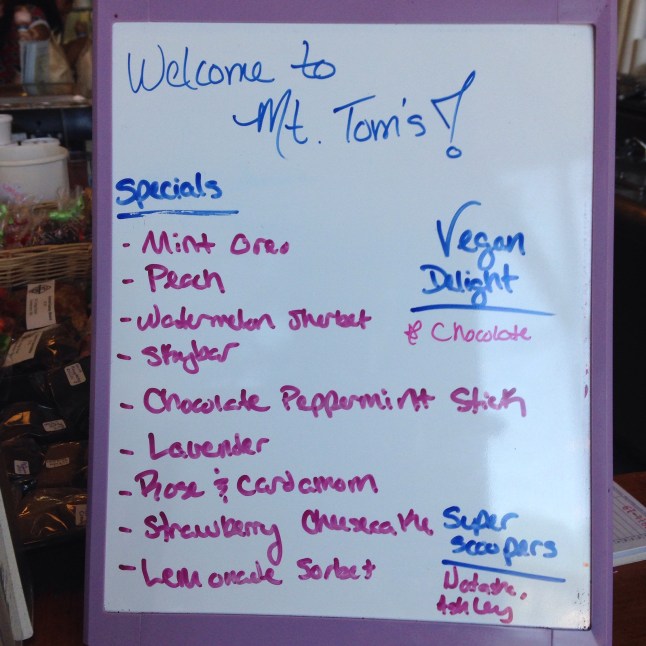 Welcome to
Mt. Tom's!
Specials
- Mint Oreo
- Peach
- Watermelon Sherbet
- Skybar
- Chocolate Peppermint Stick
- Lavender
- Rose & Cardamom
- Strawberry Cheesecake
- Lemonade Sorbet
Vegan
Delight
Chocolate
Super
Scoopers
Ashley